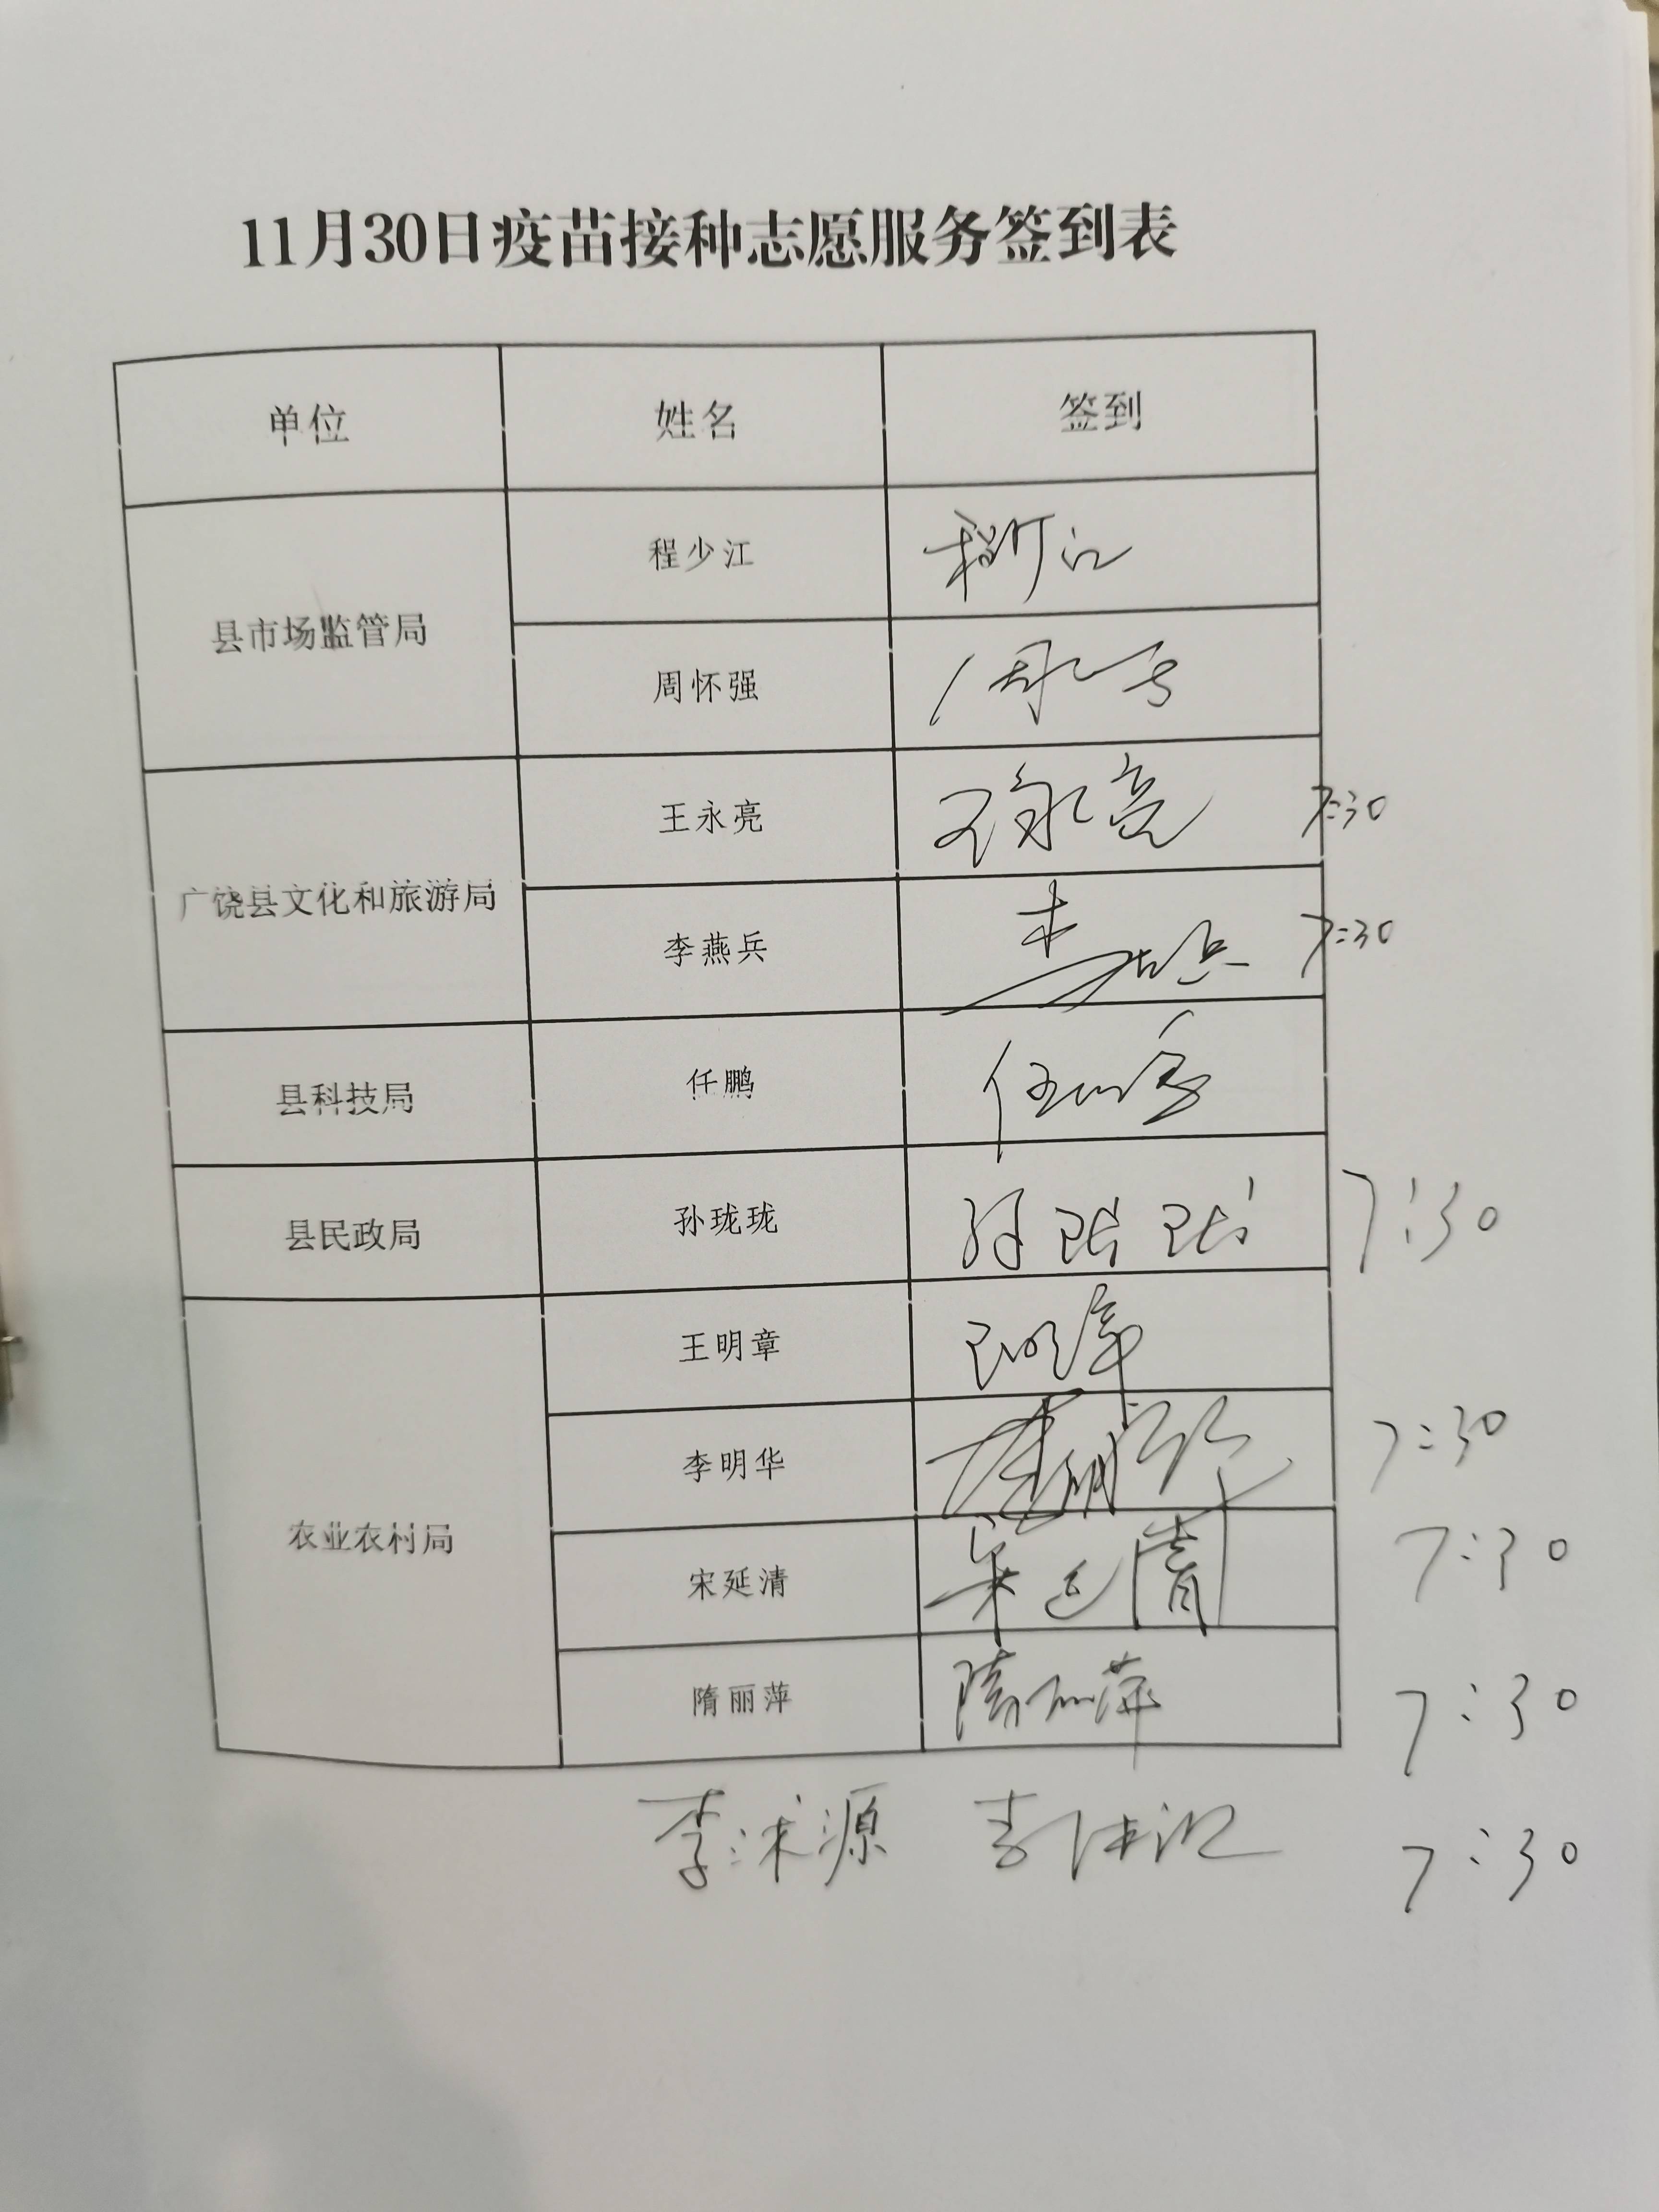 11月30日疫苗接种志愿服务签到表
单位 姓名 签到
县市场监管局
程少江 程少江
周怀强 周怀强
广饶县文化和旅游局
王永亮 王永亮 7:30
李燕兵 李燕兵 7:30
县科技局 任鹏 任鹏
县民政局 孙珑珑 孙珑珑 7:30
农业农村局
王明章 王明章
李明华 李明华 7:30
宋延清 宋延清 7:30
隋丽萍 隋丽萍 7:30
李沭源 7:30